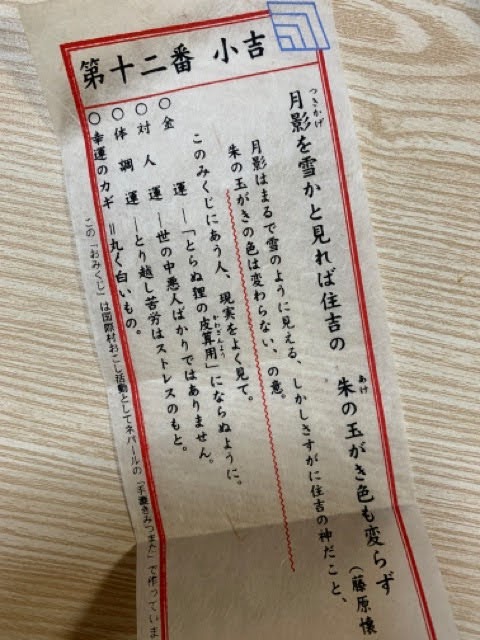 第十二番 小吉
つきかげ
月影を雪かと見れば住吉の
あけ
朱の玉がき色も変らず
（藤原懐
月影はまるで雪のように見える、しかしさすがに住吉の神だこと、
朱の玉がきの色は変わらない、の意。
このみくじにあう人、現実をよく見て。
○金運―「とらぬ狸の皮算用」にならぬように。
かわざんよう
○対人運―世の中悪人ばかりではありません。
○体調運―とり越し苦労はストレスのもと。
○幸運のカギ＝丸く白いもの。
この「おみくじ」は国際村おこし活動としてネパールの「手漉きみつまた」で作っていま